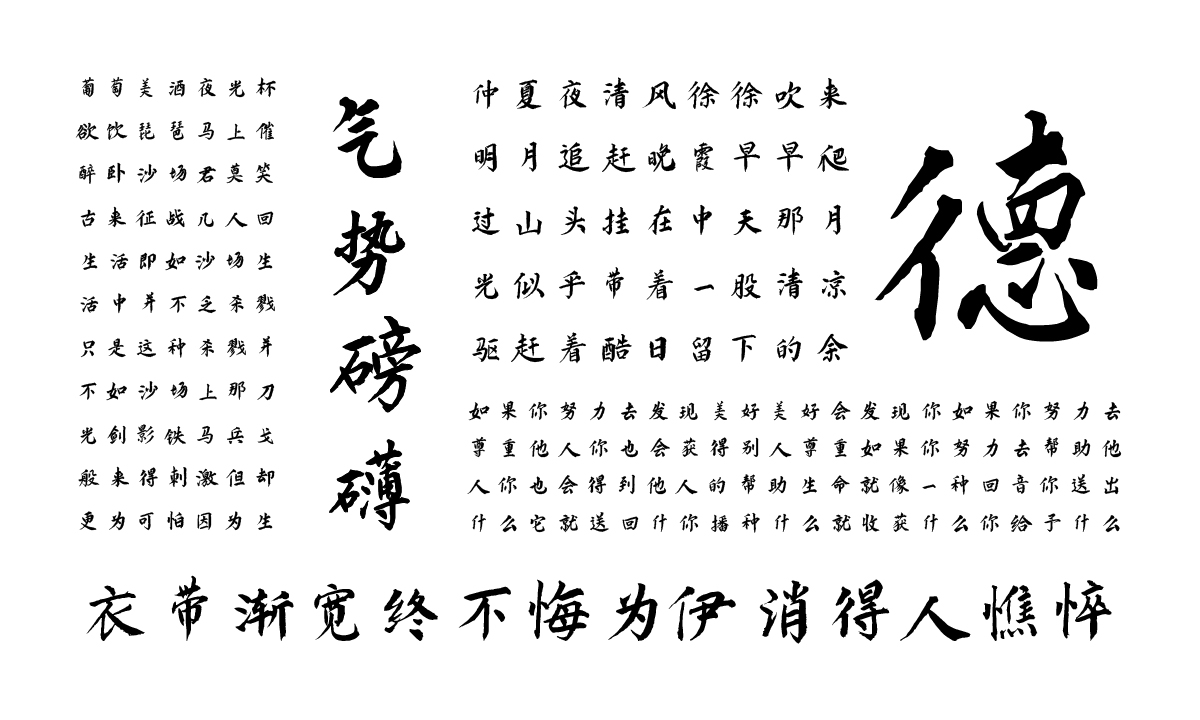 葡萄美酒夜光杯
欲饮琵琶马上催
醉卧沙场君莫笑
古来征战几人回
生活即如沙场生
活中并不乏杀戮
只是这种杀戮并
不如沙场上那刀
光剑影铁马兵戈
般来得刺激但却
更为可怕因为生
气势磅礴
仲夏夜清风徐徐吹来
明月追赶晚霞早早爬
过山头挂在中天那月
光似乎带着一股清凉
驱赶着酷日留下的余
德
如果你努力去发现美好美好会发现你如果你努力去
尊重他人你也会获得别人尊重如果你努力去帮助他
人你也会得到他人的帮助生命就像一种回音你送出
什么它就送回什你播种什么就收获什么你给予什么
衣带渐宽终不悔为伊消得人憔悴